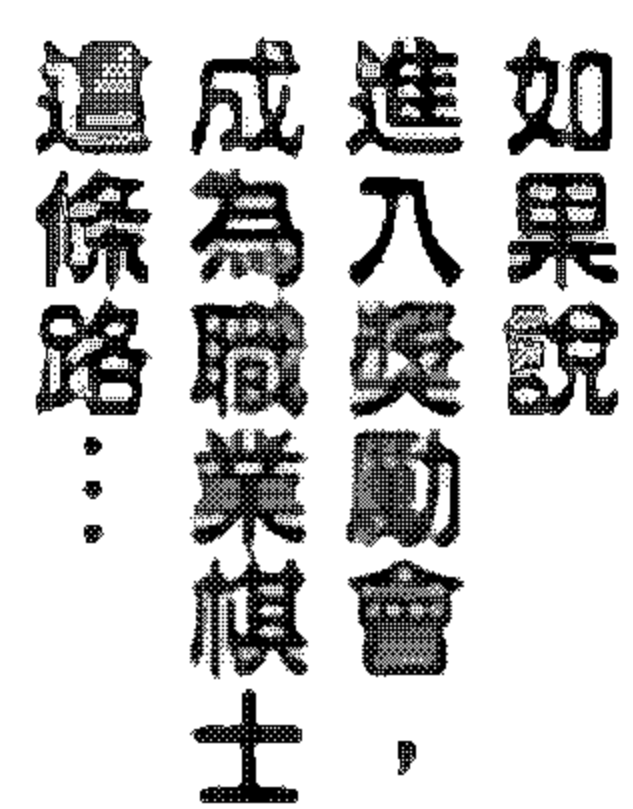 如果說
進入獎勵會，
成為職業棋士
這條路⋯